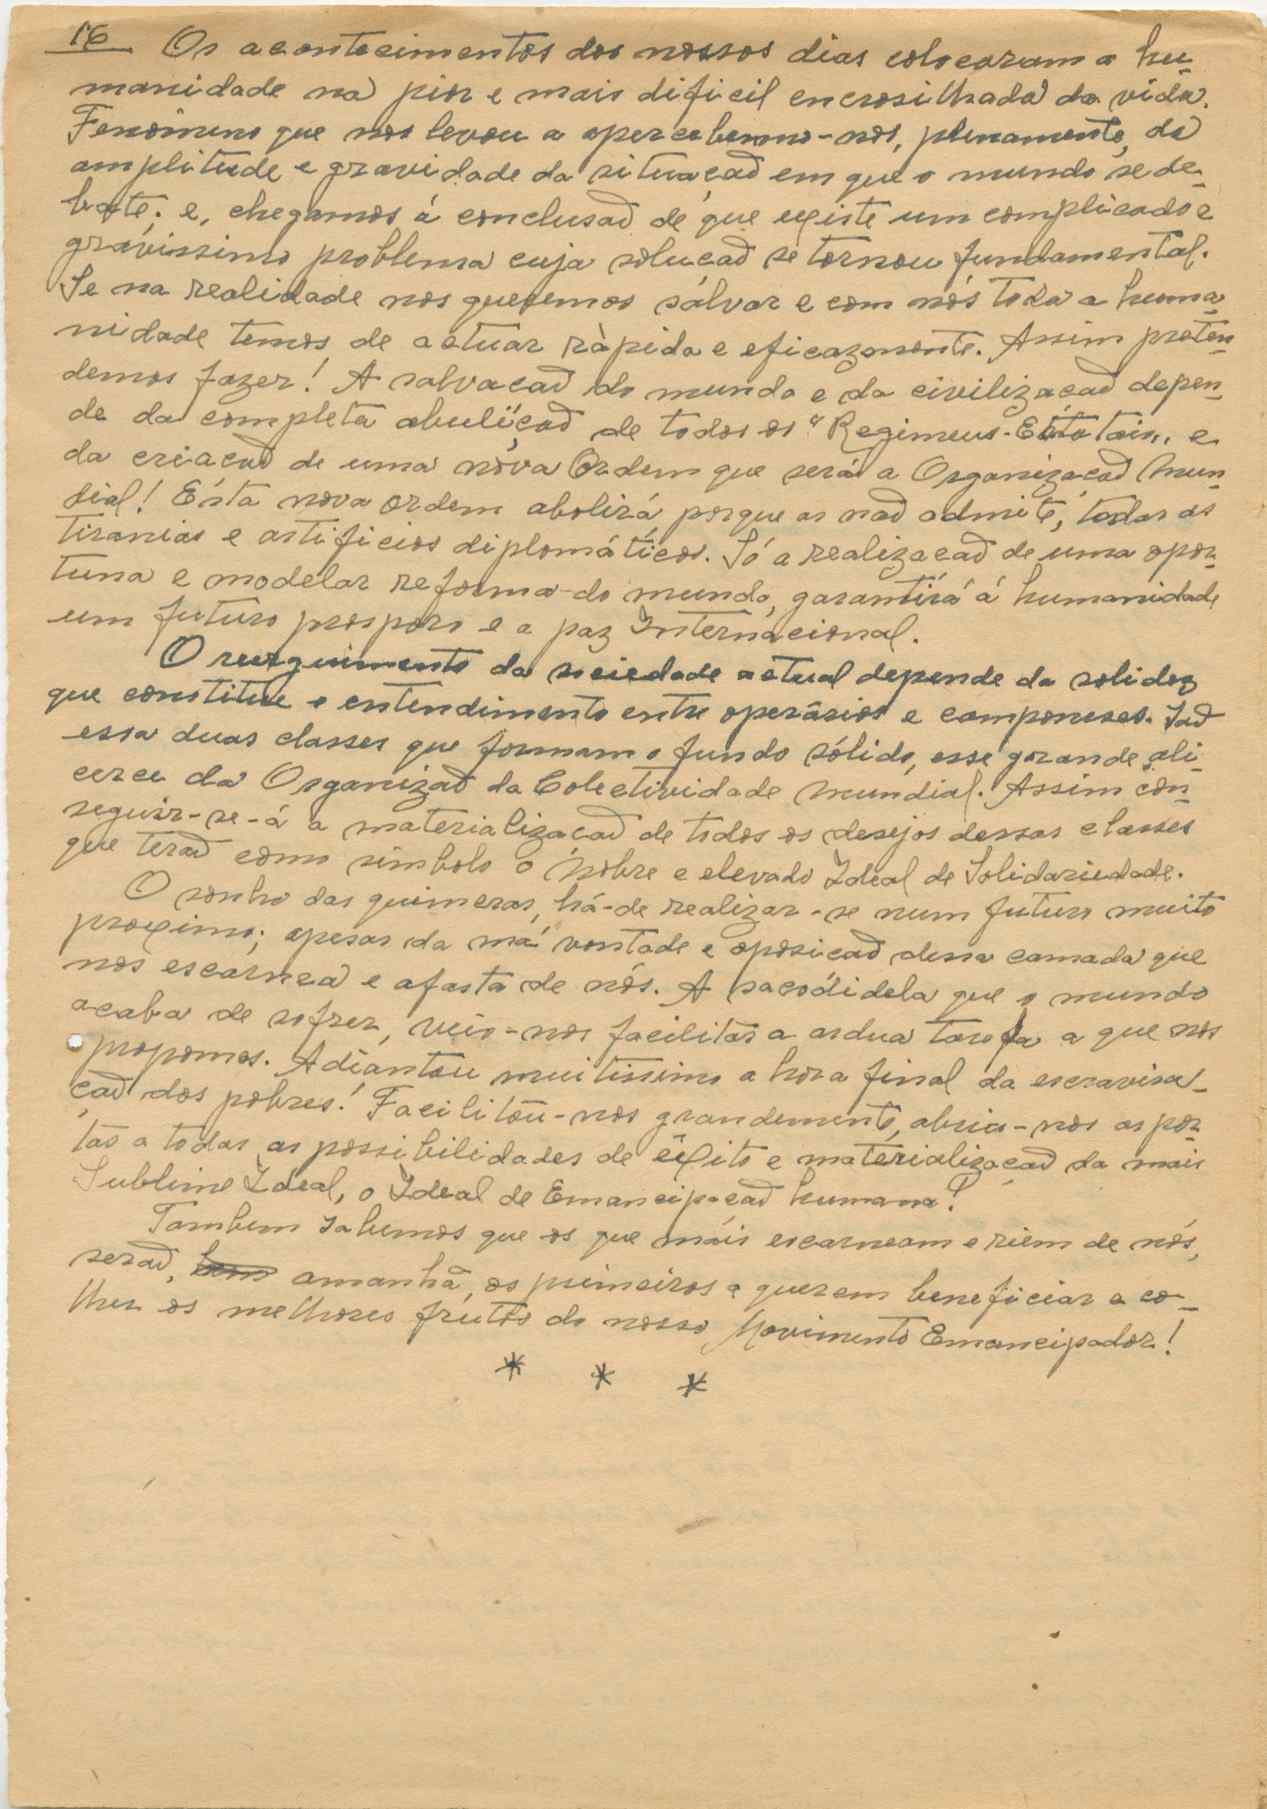 16 Os acontecimentos dos nossos dias colocaram a hu-
manidade na pior e mais dificil encrosilhada da vida.
Fenómeno que nos levou a apercebermo-nos, plenamente, da
amplitude e gravidade da situação em que o mundo se de-
bate. e, chegamos á conclusão de que existe um complicado e
gravissimo problema cuja solução se tornou fundamental.
Se na realidade nos queremos sálvar e com nós toda a huma-
nidade temos de actuar ràpida e eficazmente. Assim preten-
demos fazer! A salvacão do mundo e da civilização depen-
de da completa abulição de todos os "Regimeus-Estatais" e
da criacão de uma nóva Ordem que será a Organizacão Mun-
dial! Ésta nova ordem abolirá, porque as não admite, todas as
tiranias e artificios diplomáticos. Só a realizacão de uma opor-
tuna e modelar reforma do mundo, garantirá á humanidade
um futuro prospero e a paz Internacional.
O reurguimento da sociedade actual depende da solidez
que constitue o entendimento entre operários e camponeses. São
essa duas classes que formam o fundo sólido, esse grande ali-
cerce da Organizão da Colectividade Mundial. Assim con-
seguir-se-á a materializacão de todos os desejos dessas classes
que terão como simbolo o Nobre e elevado Ideal de Solidariedade.
O sonho das quimeras, há-de realizar-se num futuro muito
proximo; apesar da má vontade e oposicão dessa camada que
nos escarnea e afasta de nós. A sacódidela que o mundo
acaba de sofrer, veio-nos facilitar a ardua tarefa a que nos
propomos. Adiantou muitissimo a hora final da escravisa-
ção dos pobres! Facilitou-nos grandemente, abriu-nos as por-
tas a todas as possibilidades de êxito e materialização da mais
Sublime Ideal, o Ideal de Emancipação humana!
Tambem sabemos que os que máis escarneam e riem de nós,
serão, amanhã, os primeiros a querem beneficiar e co-
lher os melhores frutos do nosso Movimento Emancipador!
* * *